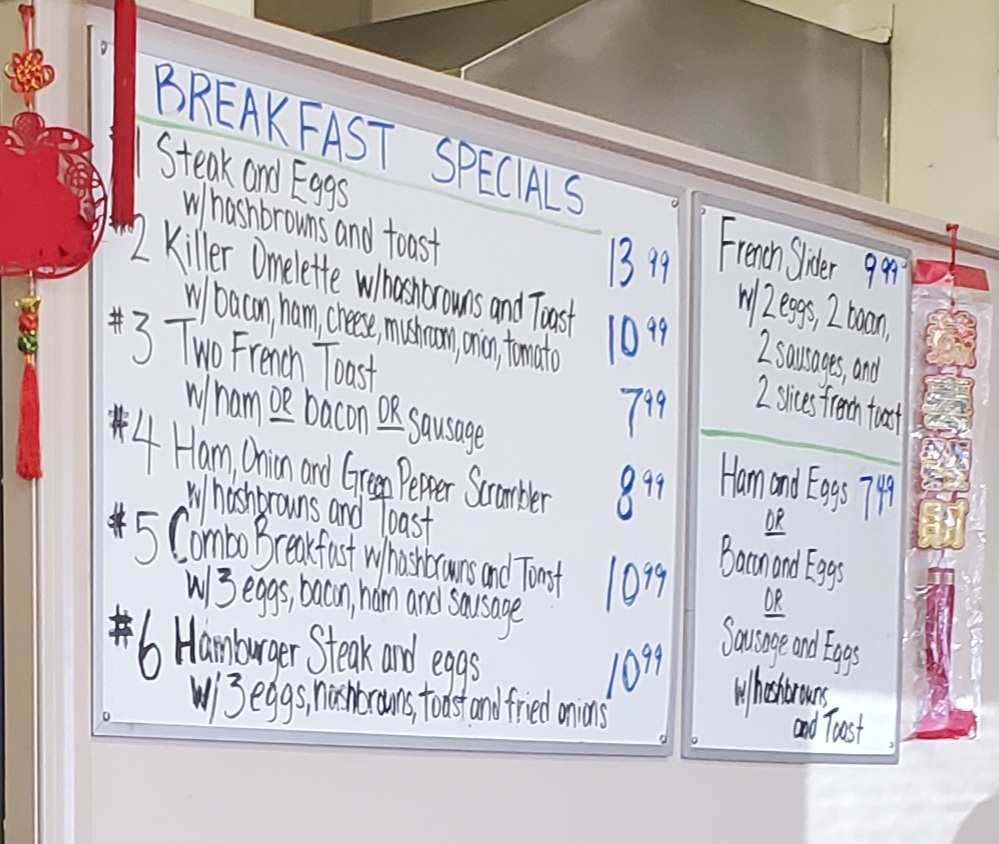 BREAKFAST SPECIALS
1 Steak and Eggs
w/hashbrowns and toast 13 99
#2 Killer Omelette w/hashbrowns and Toast
w/bacon, ham, cheese, mushroom, onion, tomato 10 99
#3 Two French Toast
w/ham OR bacon OR sausage 7 99
#4 Ham, Onion and Green Pepper Scrambler
w/hashbrowns and Toast 8 99
#5 Combo Breakfast w/hashbrowns and Toast
w/3 eggs, bacon, ham and sausage 10 99
#6 Hamburger Steak and eggs
w/ 3 eggs, hashbrowns, toast and fried onions 10 99
French Slider 9 99
w/ 2 eggs, 2 bacon,
2 sausages, and
2 slices french toast
Ham and Eggs 7 49
OR
Bacon and Eggs
OR
Sausage and Eggs
w/hashbrowns
and Toast
恭
喜
發
財